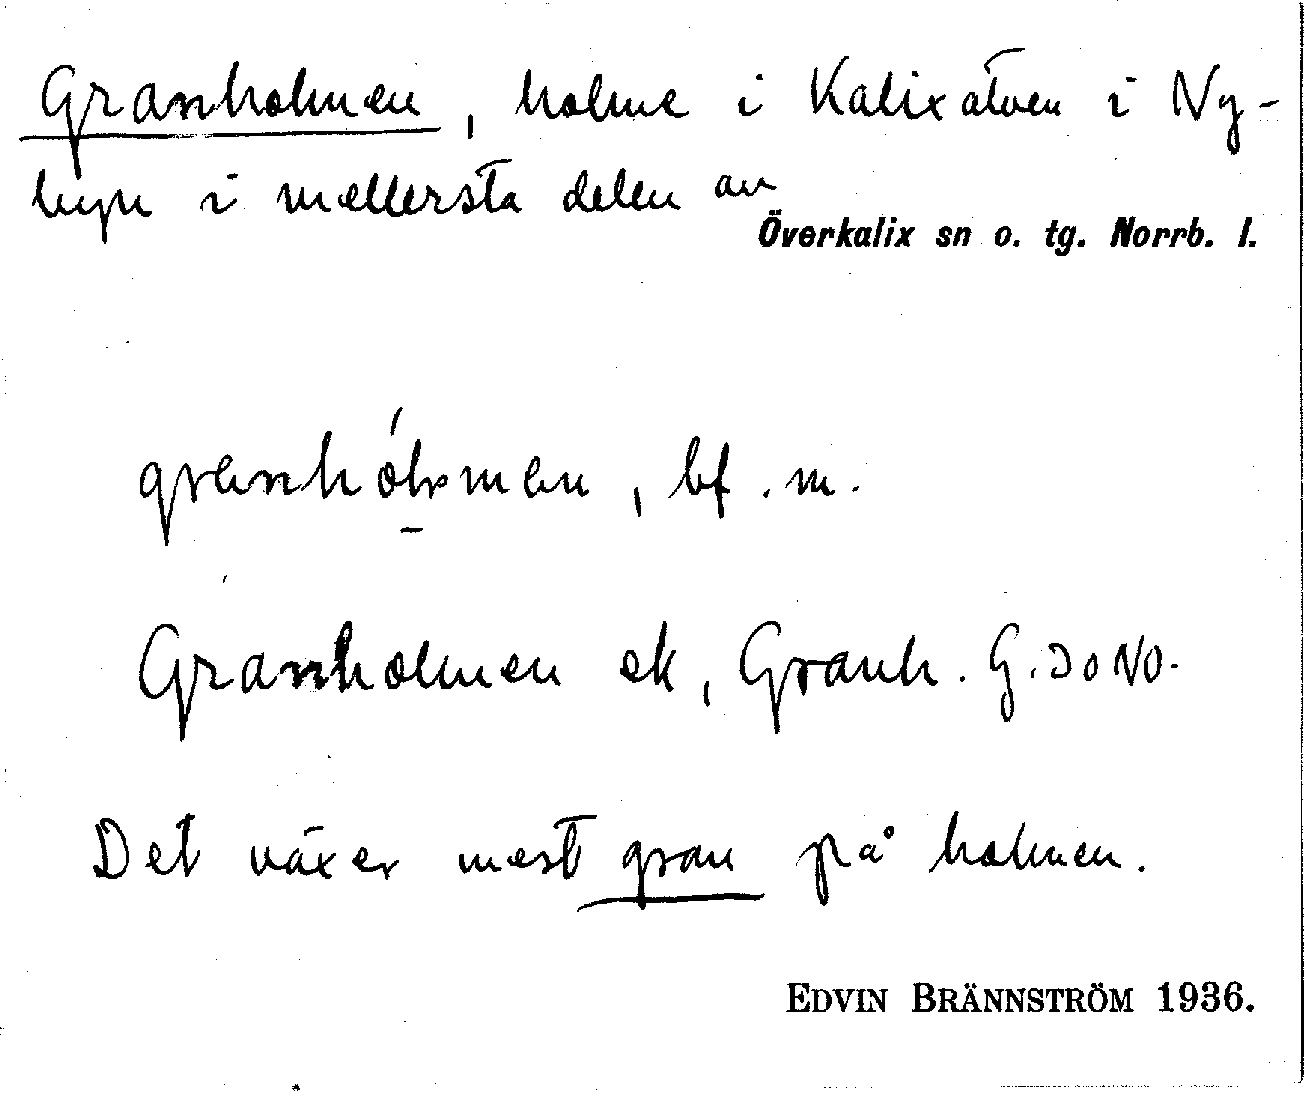 Granholmen, holme i Kalixälven i Ny-
byn i mellersta delen av
Överkalix sn o. tg. Norrb. l.
granhólmen, bf. m.
Granholmen ek, Granh. G. 30 NO.
Det växer mest gran på holmen.
EDVIN BRÄNNSTRÖM 1936.